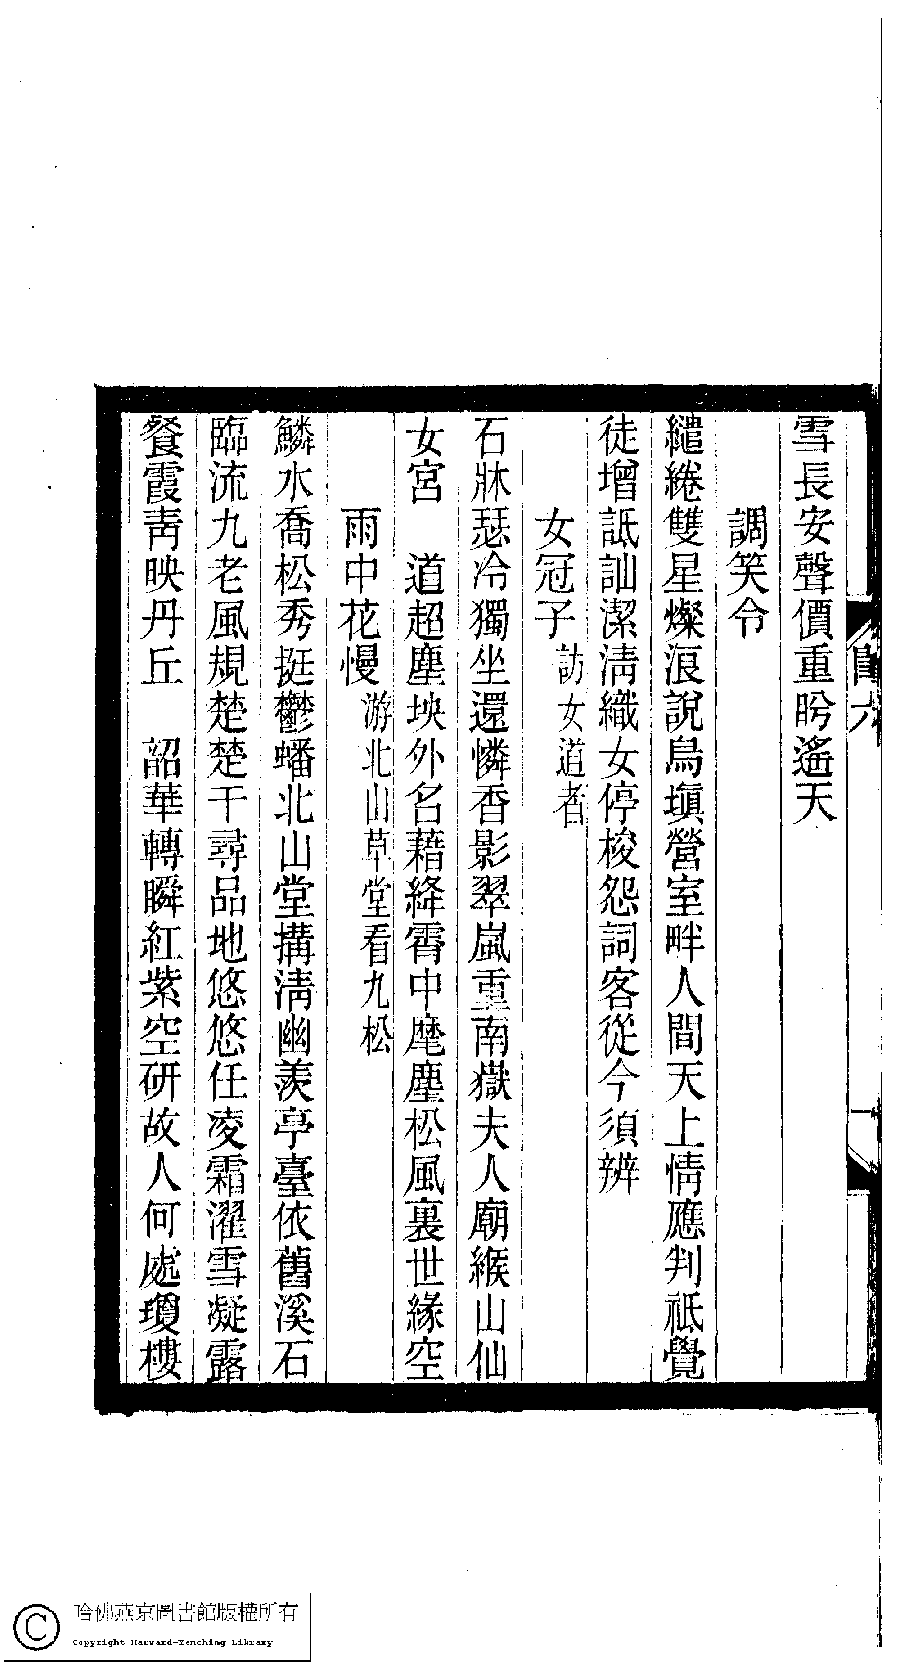 雪長安聲價重盻遙天
調笑令
繾綣雙星燦浪說烏塡營室畔人間天上情應判祇覺
徒增詆訕潔淸織女停梭怨詞客從今須辨
女冠子 訪女道者
石牀瑟冷獨坐還憐香影翠嵐重南嶽夫人廟緱山仙
女宮　道超塵坱外名藉絳霄中麾塵松風裏世緣空
雨中花慢 游北山草堂看九松
鱗水喬松秀挺鬱蟠北山堂搆淸幽羨亭臺依舊溪石
臨流九老風規楚楚千尋品地悠悠任凌霜濯雪凝露
餐霞靑映丹丘　韶華轉瞬紅紫空硏故人何處瓊樓
哈佛燕京圖書館版權所有
Copyright Harvard-Yenching Library